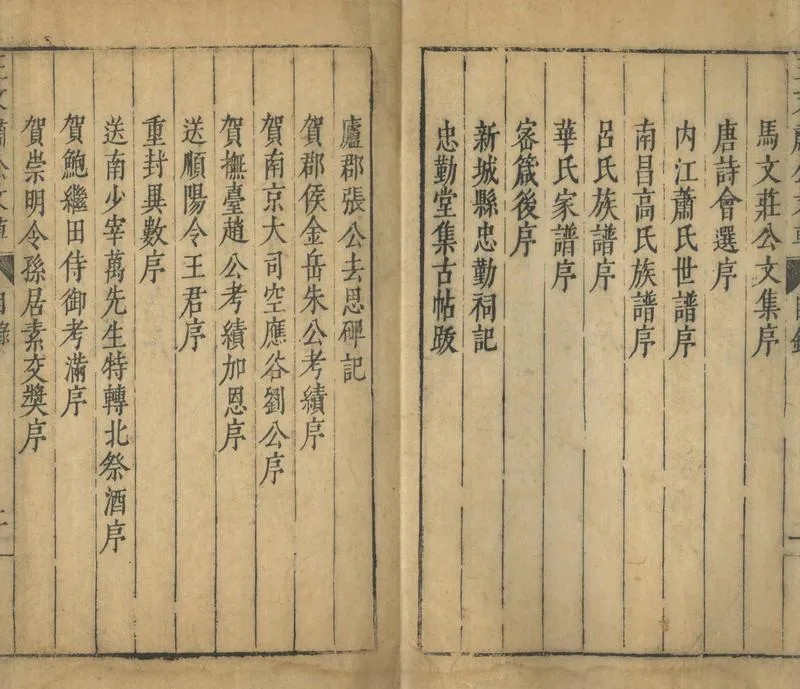 王文肅公文草 目錄 一
馬文莊公文集序
唐詩會選序
内江蕭氏世譜序
南昌高氏族譜序
呂氏族譜序
華氏家譜序
密箴後序
新城縣忠勤祠記
忠勤堂集古帖跋
廬郡張公去思碑記
賀郡侯金岳朱公考績序
賀南京大司空應谷劉公序
賀撫臺趙公考績加恩序
送順陽令王君序
重封異數序
送南少宰萬先生特轉北祭酒序
賀鮑繼田侍御考滿序
賀崇明令孫居素交獎序
王文肅公文草 目錄 二